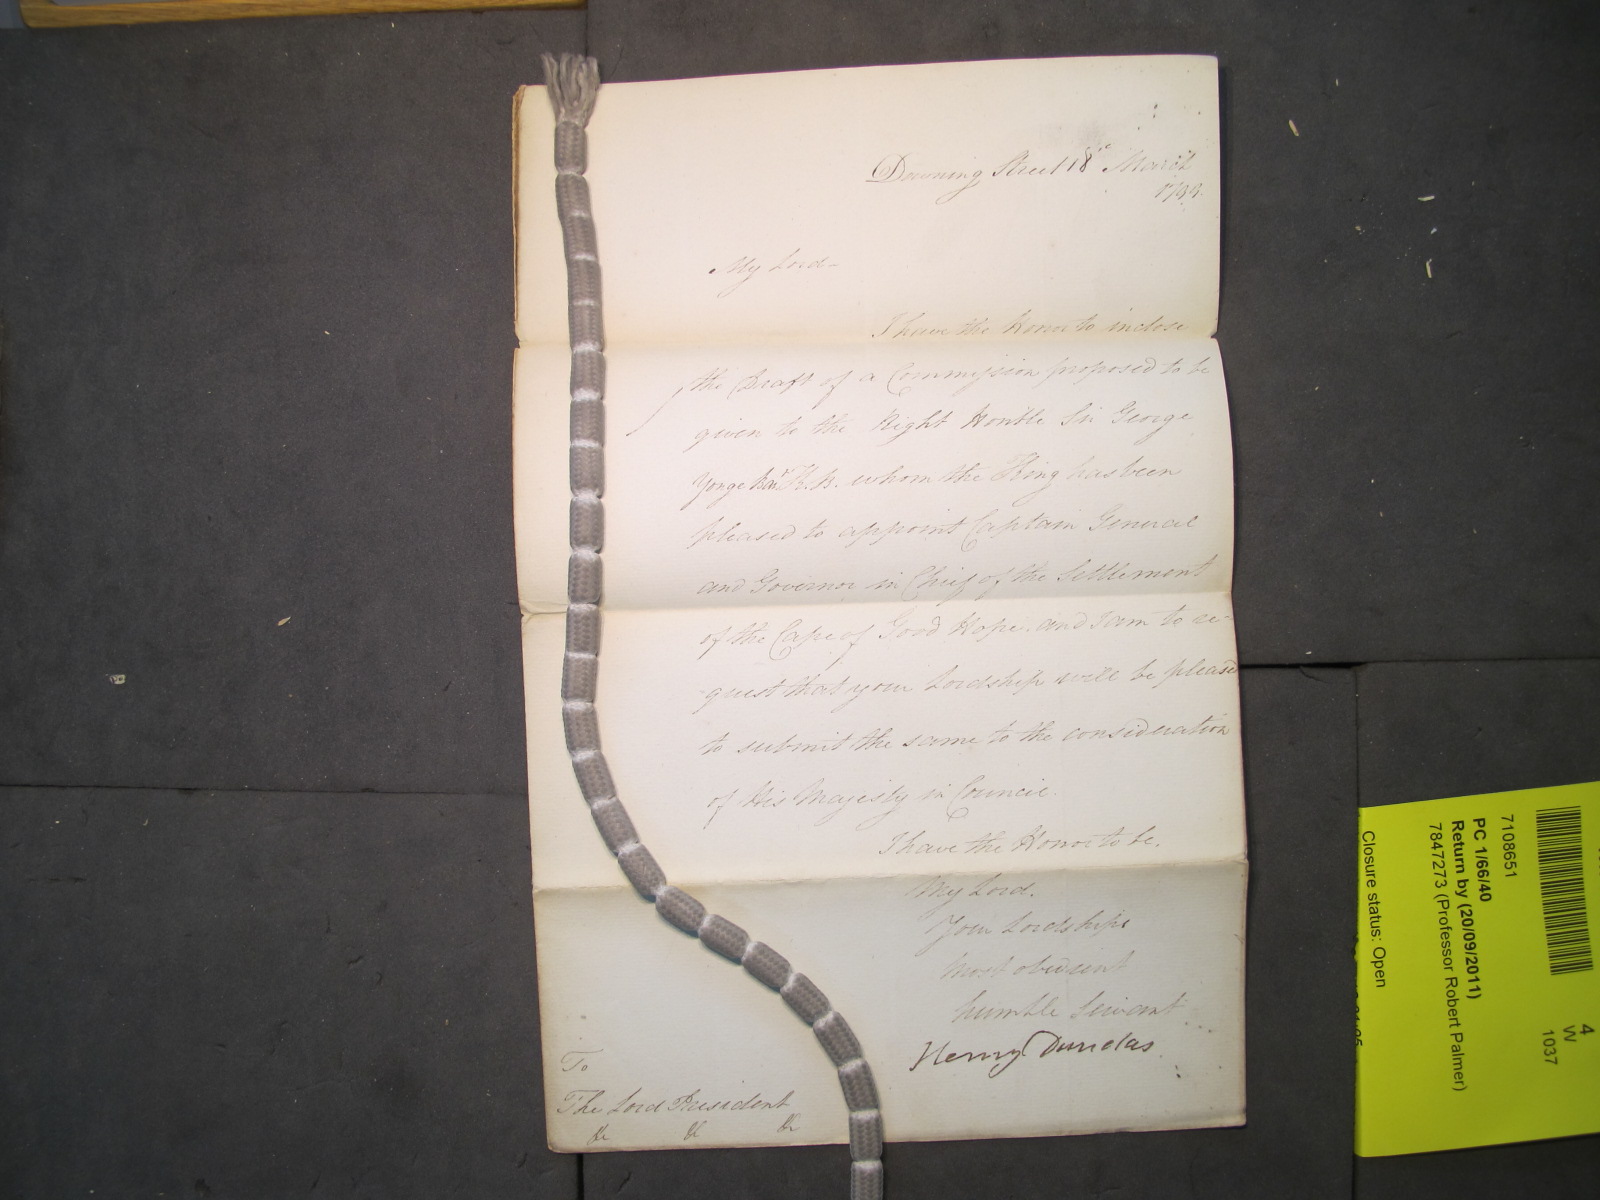 Downing Street 18th March
1799.
My Lord-
I have the Honor to inclose
the Draft of a Commission proposed to be
given to the Right Honble Sir George
Yonge Bart. K.B. whom the King has been
pleased to appoint Captain General
and Governor in Chief of the Settlement
of the Cape of Good Hope. and I am to re-
quest that your Lordship will be pleased
to submit the same to the consideration
of His Majesty in Council.
I have the Honor to be.
My Lord.
Your Lordships
most obedient
humble Servant
Henry Dundas
To
The Lord President
&c &c &c
7108651
PC 1/66/40
Return by (20/09/2011)
7847273 (Professor Robert Palmer)
Closure status: Open
4
W
1037